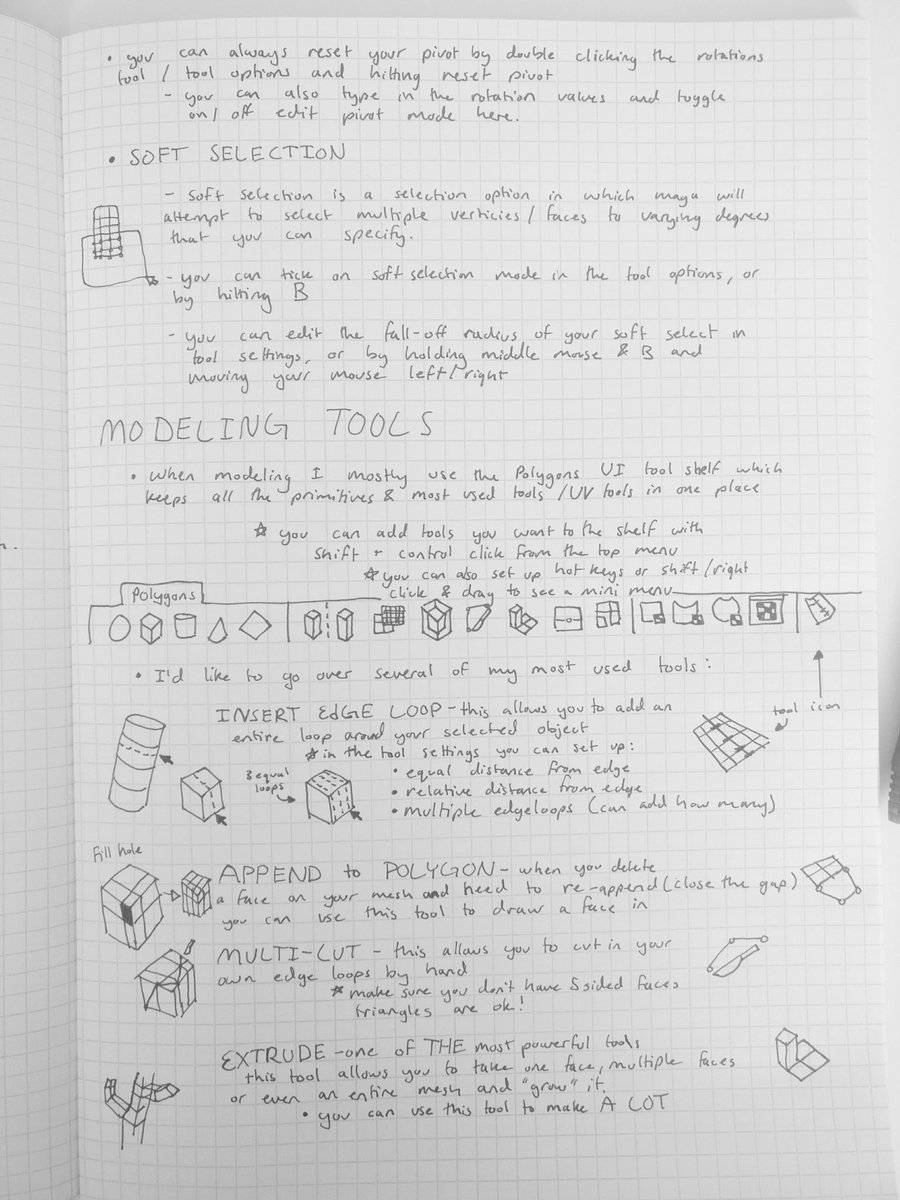 • you can always reset your pivot by double clicking the rotations
tool / tool options and hitting reset pivot
- you can also type in the rotation values and toggle
on / off edit pivot mode here.
• SOFT SELECTION
- Soft selection is a selection option in which maya will
attempt to select multiple verticies / faces to varying degrees
that you can specify.
- you can tick on soft selection mode in the tool options, or
by hitting B
- you can edit the fall-off radius of your soft select in
tool settings, or by holding middle mouse & B and
moving your mouse left/right
MODELING TOOLS
• When modeling I mostly use the Polygons UI tool shelf which
keeps all the primitives & most used tools / UV tools in one place
☆ you can add tools you want to the shelf with
Shift + control click from the top menu
☆ you can also set up hot keys or shift/right
click & drag to see a mini menu
Polygons
• I'd like to go over several of my most used tools:
INSERT EDGE LOOP - this allows you to add an
entire loop around your selected object
☆ in the tool settings you can set up:
• equal distance from edge
• relative distance from edge
• multiple edgeloops (can add how many)
3 equal
loops
tool icon
Fill hole
APPEND to POLYGON - when you delete
a face on your mesh and need to re-append (close the gap)
you can use this tool to draw a face in
MULTI-CUT - this allows you to cut in your
own edge loops by hand
☆ make sure you don't have 5 sided faces
triangles are ok!
EXTRUDE - one of THE most powerful tools
this tool allows you to take one face, multiple faces
or even an entire mesh and "grow" it.
• you can use this tool to make A LOT